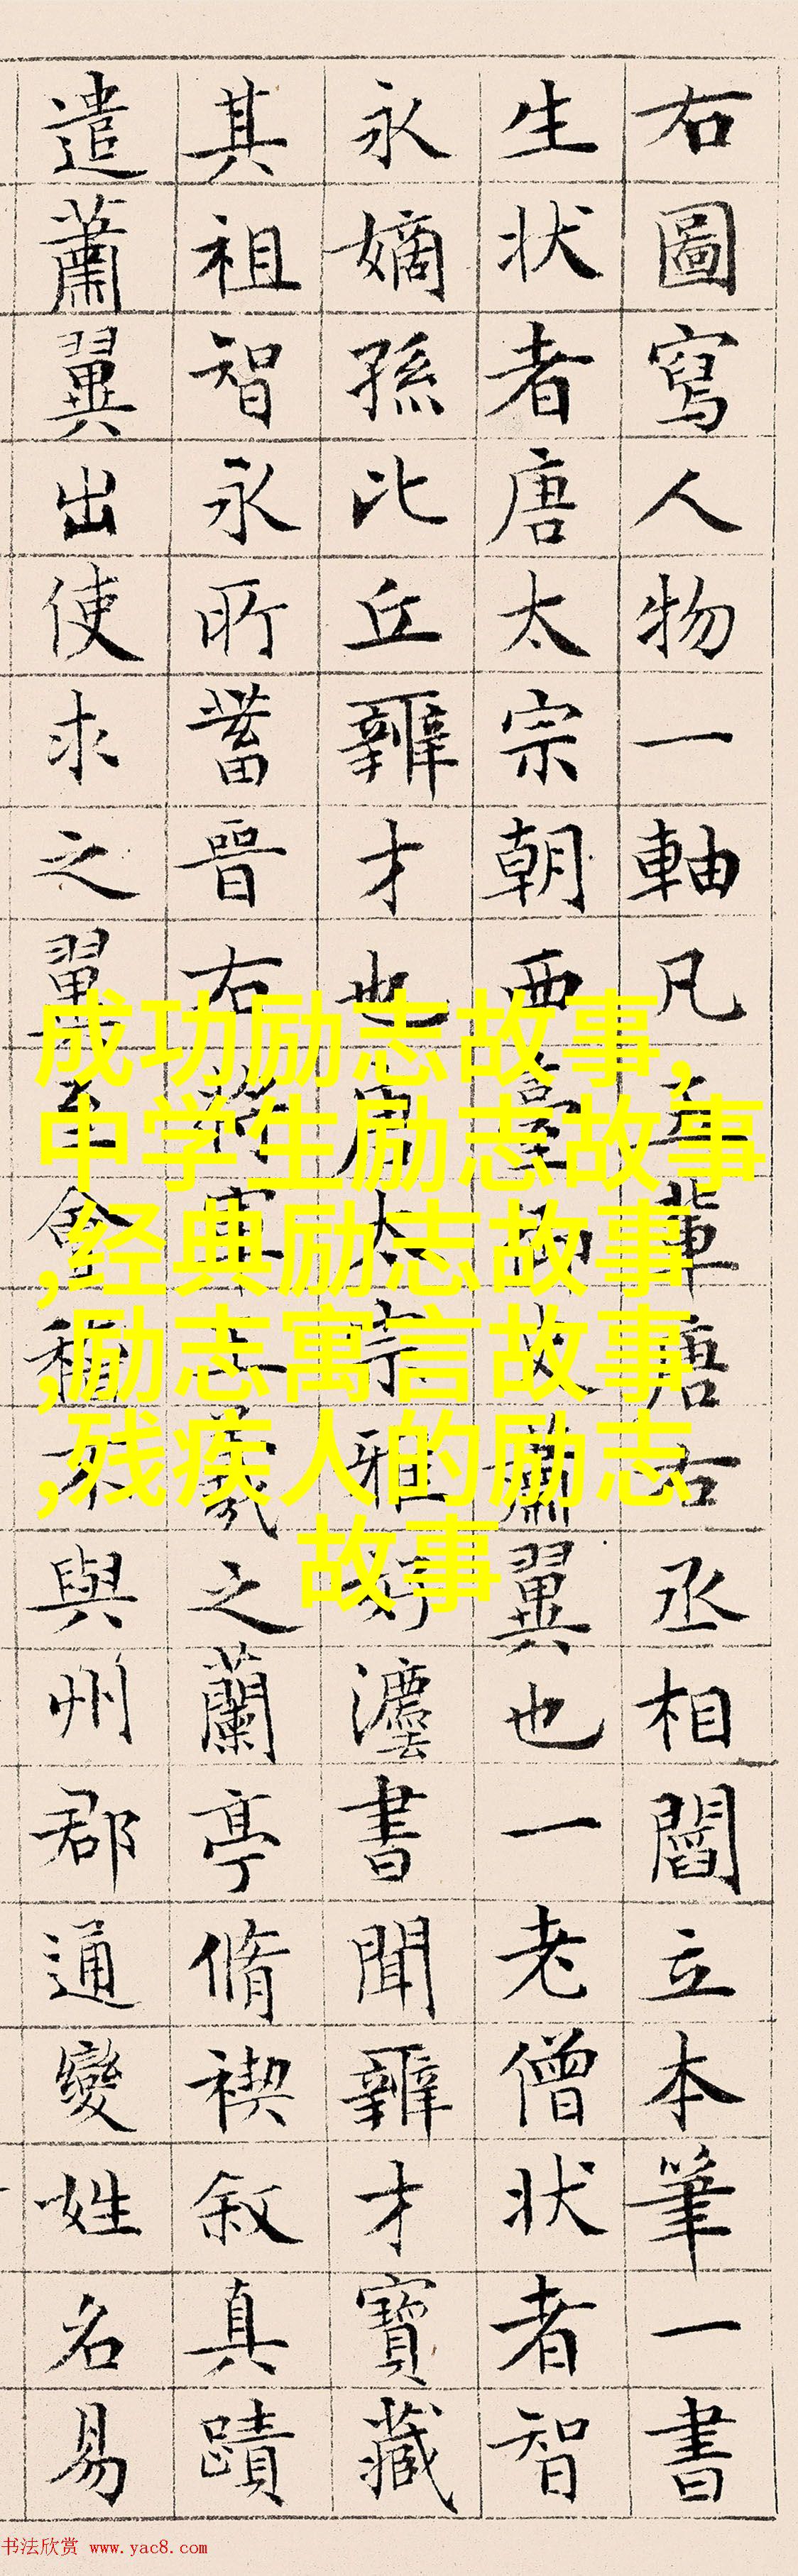 右圖寫人物一軸凡五輩唐右丞相閻立本筆一書
生状者唐太宗朝西臺御史蕭翼也一老僧状者智
永嫡孫比丘辯才也唐太宗雅好灋書聞辯才寶藏
其祖智永所蓄晉右將軍王羲之蘭亭脩禊叙真蹟
遣蕭翼出使求之翼至會稽不與州郡通變姓名易
成功励志故事,
中学生励志故事
,经典励志故事
,励志寓言故事
,残疾人的励志
故事
书法欣赏 www.yac8.com